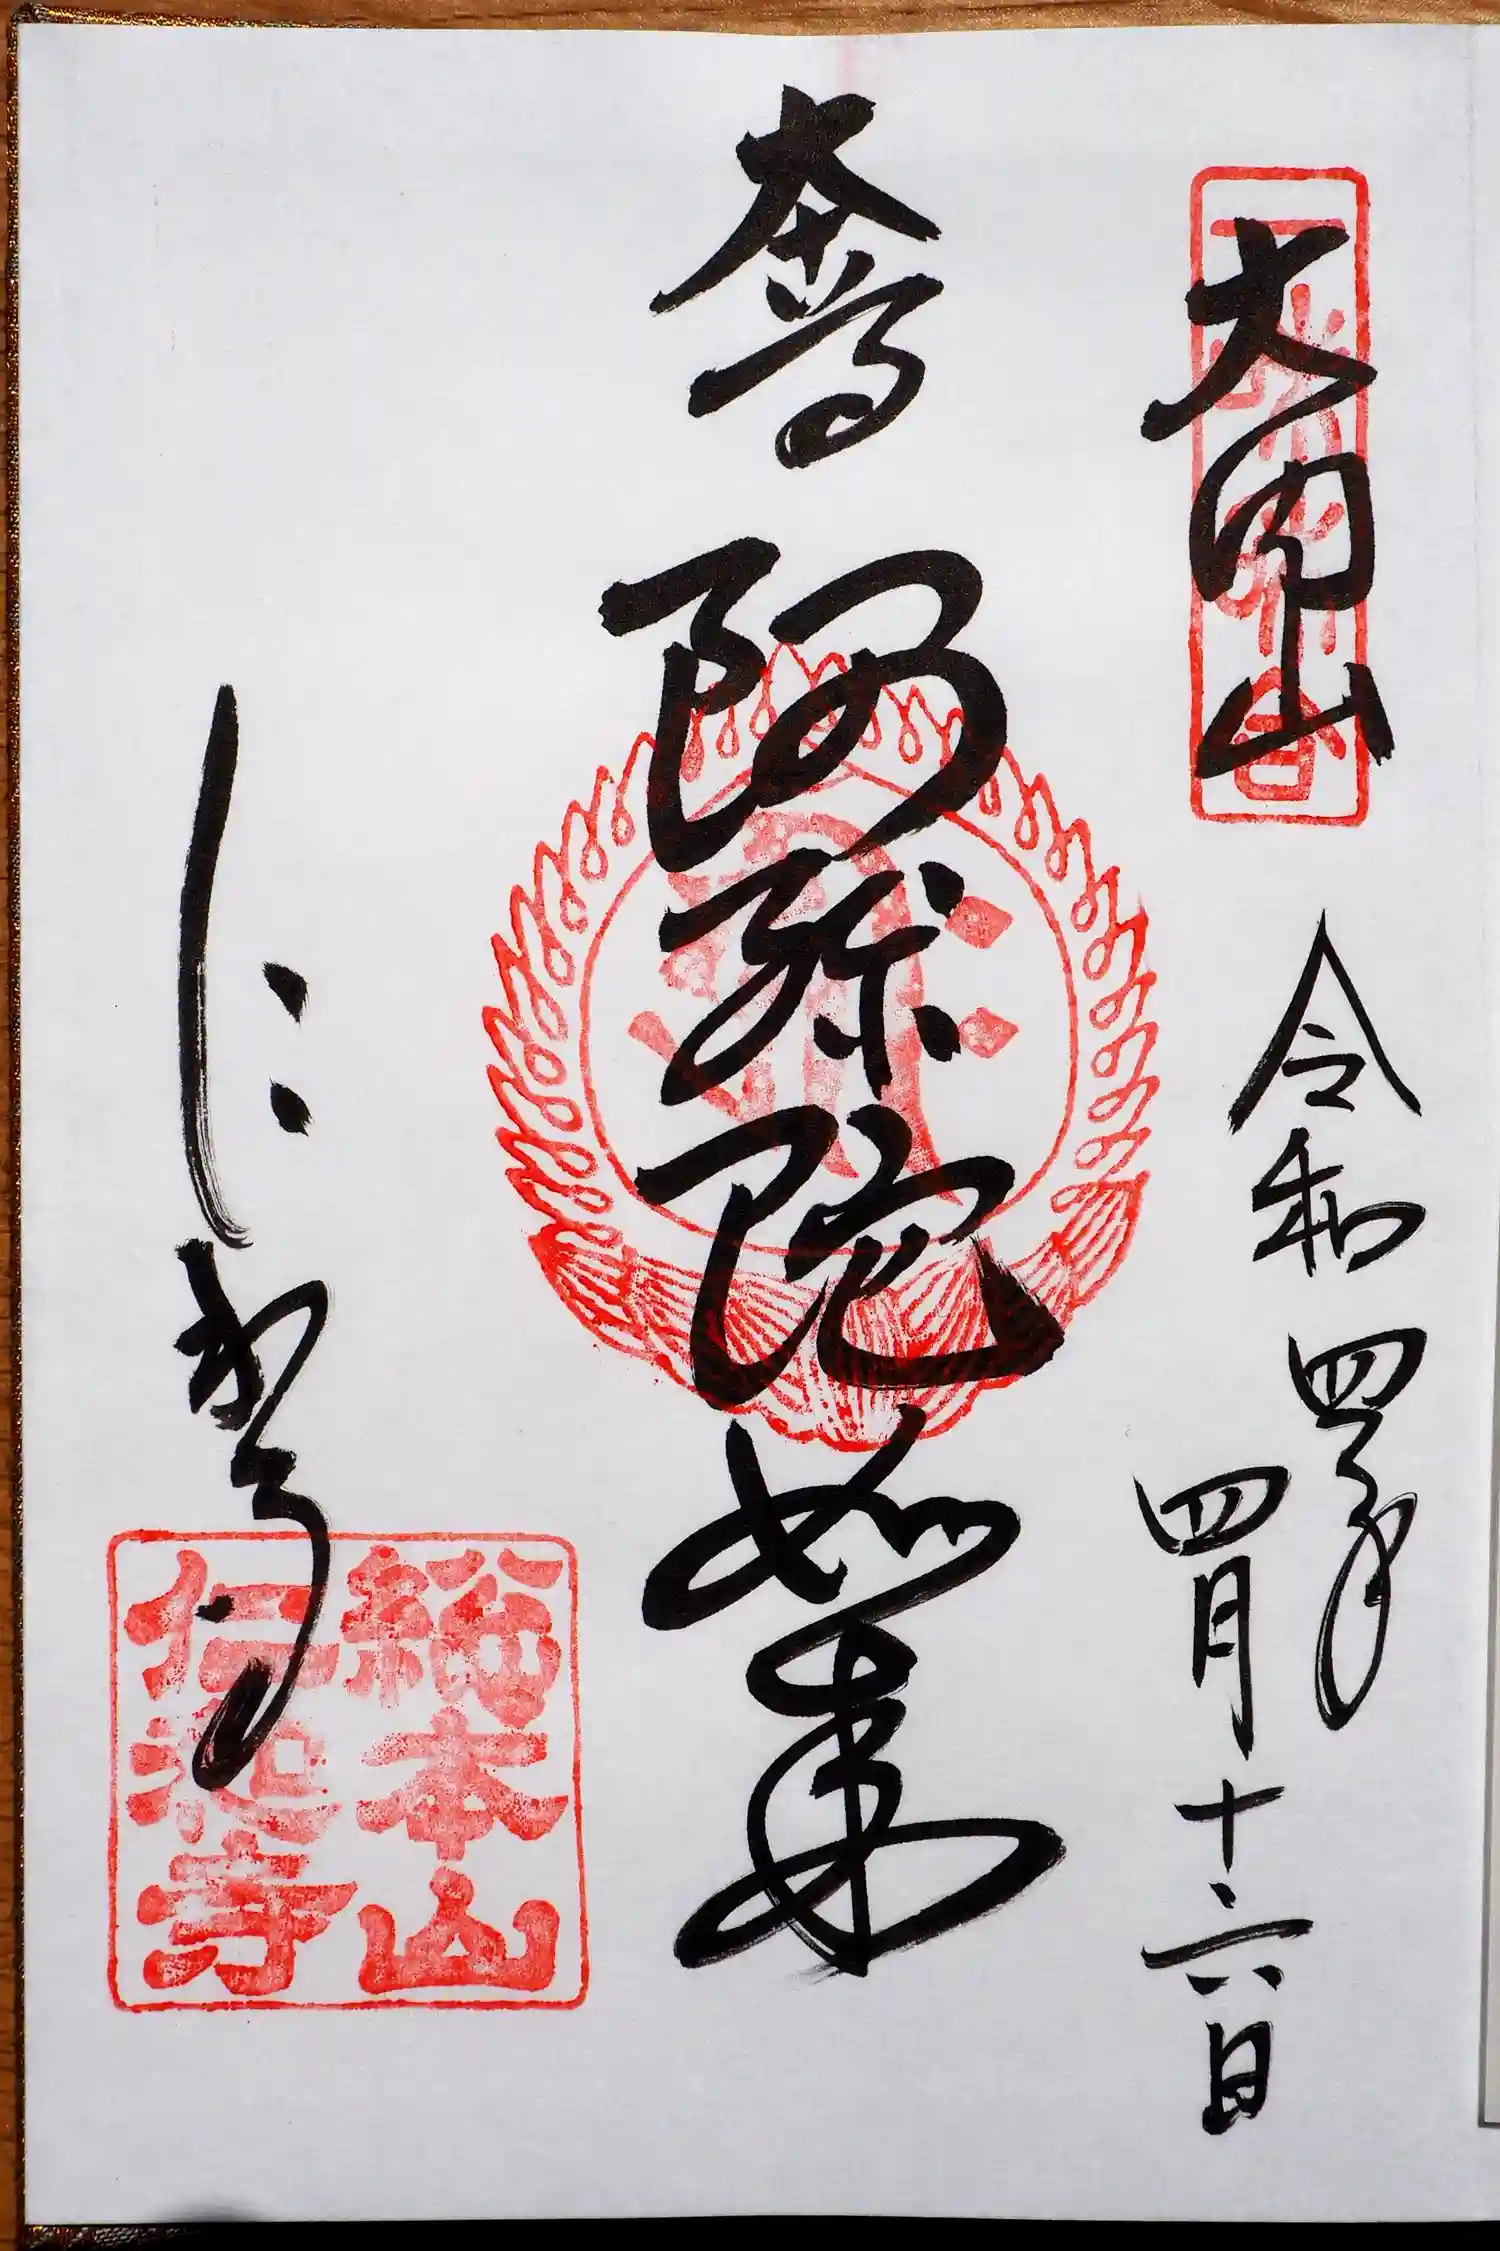 大内山
令和四年
四月十六日
本尊
阿弥陀如来
仁和寺
総本山
仁和寺